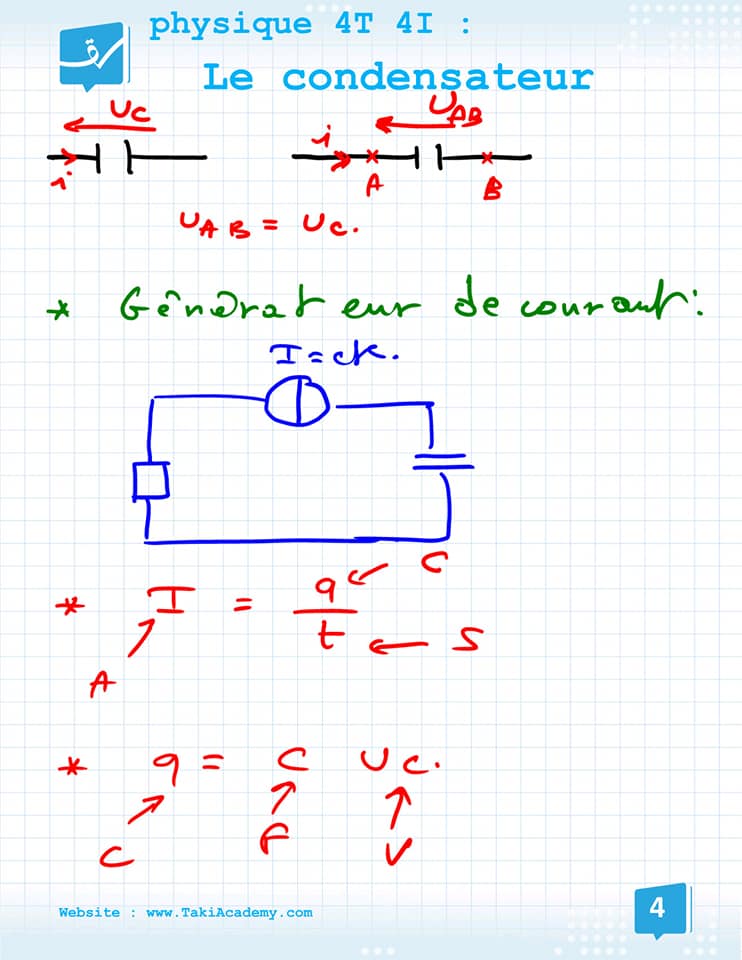 physique 4T 4I :
Le condensateur
uc
UAB
i
i
A
B
UAB = Uc.
* Générateur de courant:
I = ck.
* I = q/t
C
S
A
* q = C Uc.
C
F
V
Website : www.TakiAcademy.com
4